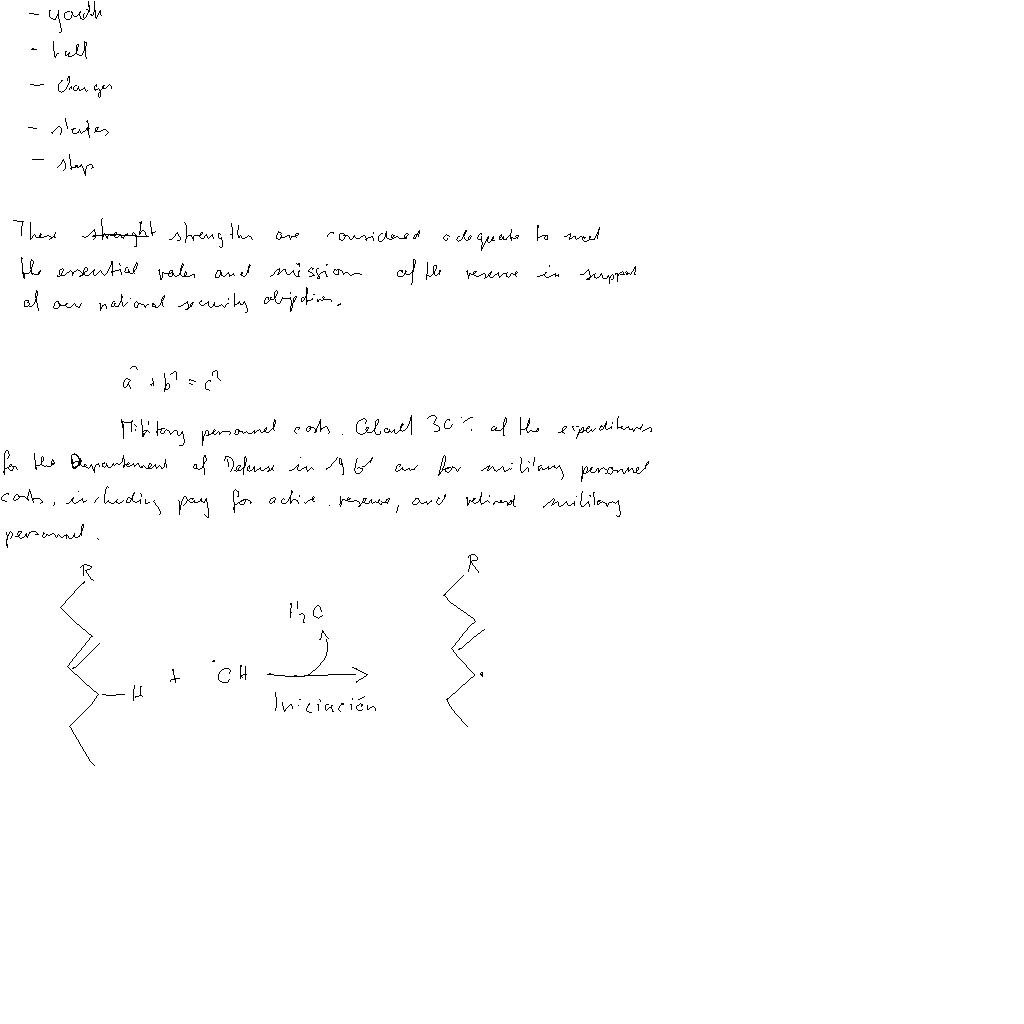 - youth
- ball
- changes
- states
- stop
These strenght strengths are considered adequate to meet
the essential roles and missions of the reserve in support
of our national security objectives.
a² + b² = c²
Military personnel costs. About 30% of the expenditures
for the Departement of Defense in are for military personnel
costs, including pay for active, reserve, and retired military
personnel.
R R
H₂O
H + ·OH
Iniciación